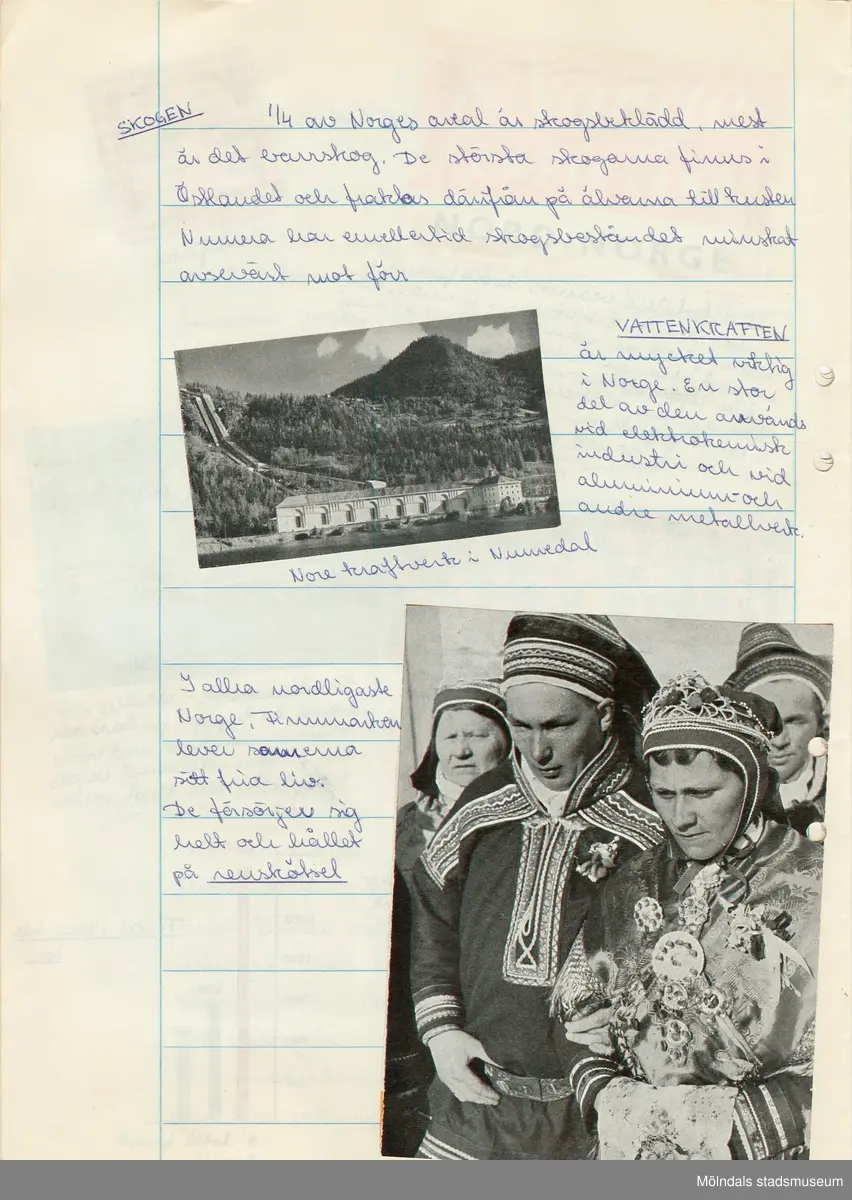 SKOGEN
1/4 av Norges areal är skogsbeklädd, mest
är det barrskog. De största skogarna finns i
Östlandet och fraktas därifrån på älvarna till kusten
Numera har emellertid skogsbeståndet minskat
avsevärt mot förr
VATTENKRAFTEN
är mycket viktig
i Norge. En stor
del av den används
vid elektrokemisk
industri och vid
aluminium- och
andre metallverk.
Nore kraftverk i Numedal
I allra nordligaste
Norge, Finnmarken
lever samerna
sitt fria liv.
De försörjer sig
helt och hållet
på renskötsel
Mölndals stadsmuseum